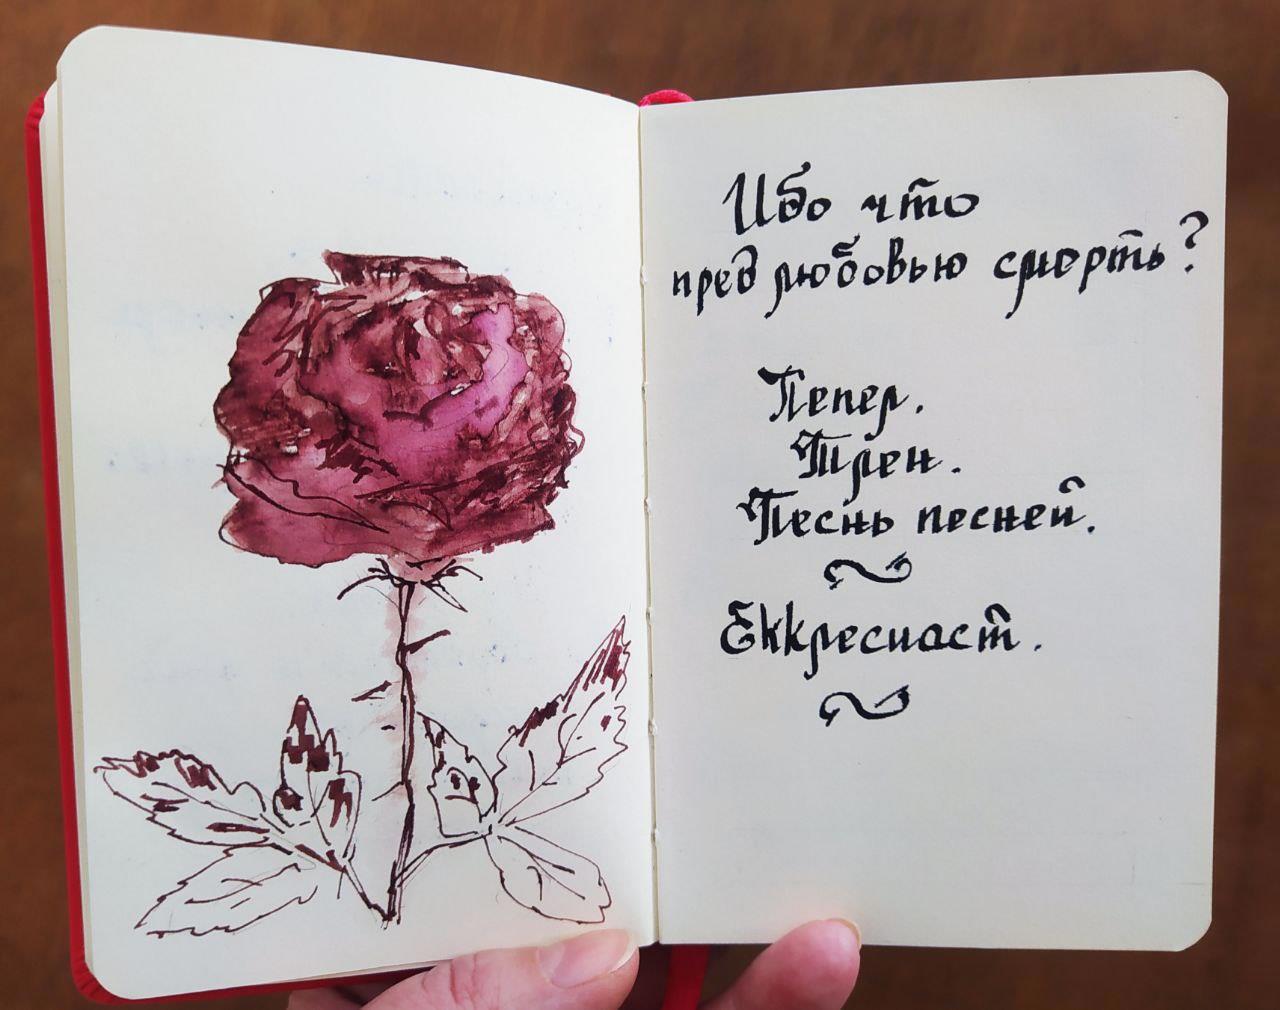 Ибо что
пред любовью смерть?
Пепел.
Трен.
Песнь песней.
Еккресиаст.